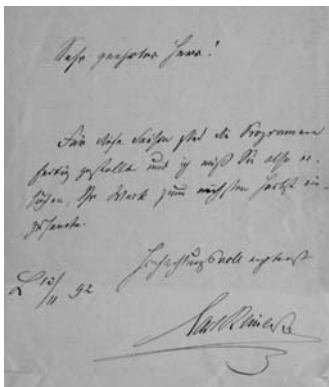 Sehr geehrter Herr!
Für diese Saison sind die Programme
fertig gestellt und ich muß Sie also er-
suchen, Ihr Werk zum nächsten Herbst ein-
zusenden.
Hochachtungsvoll ergebenst
L 12/11 92
Carl Reinecke